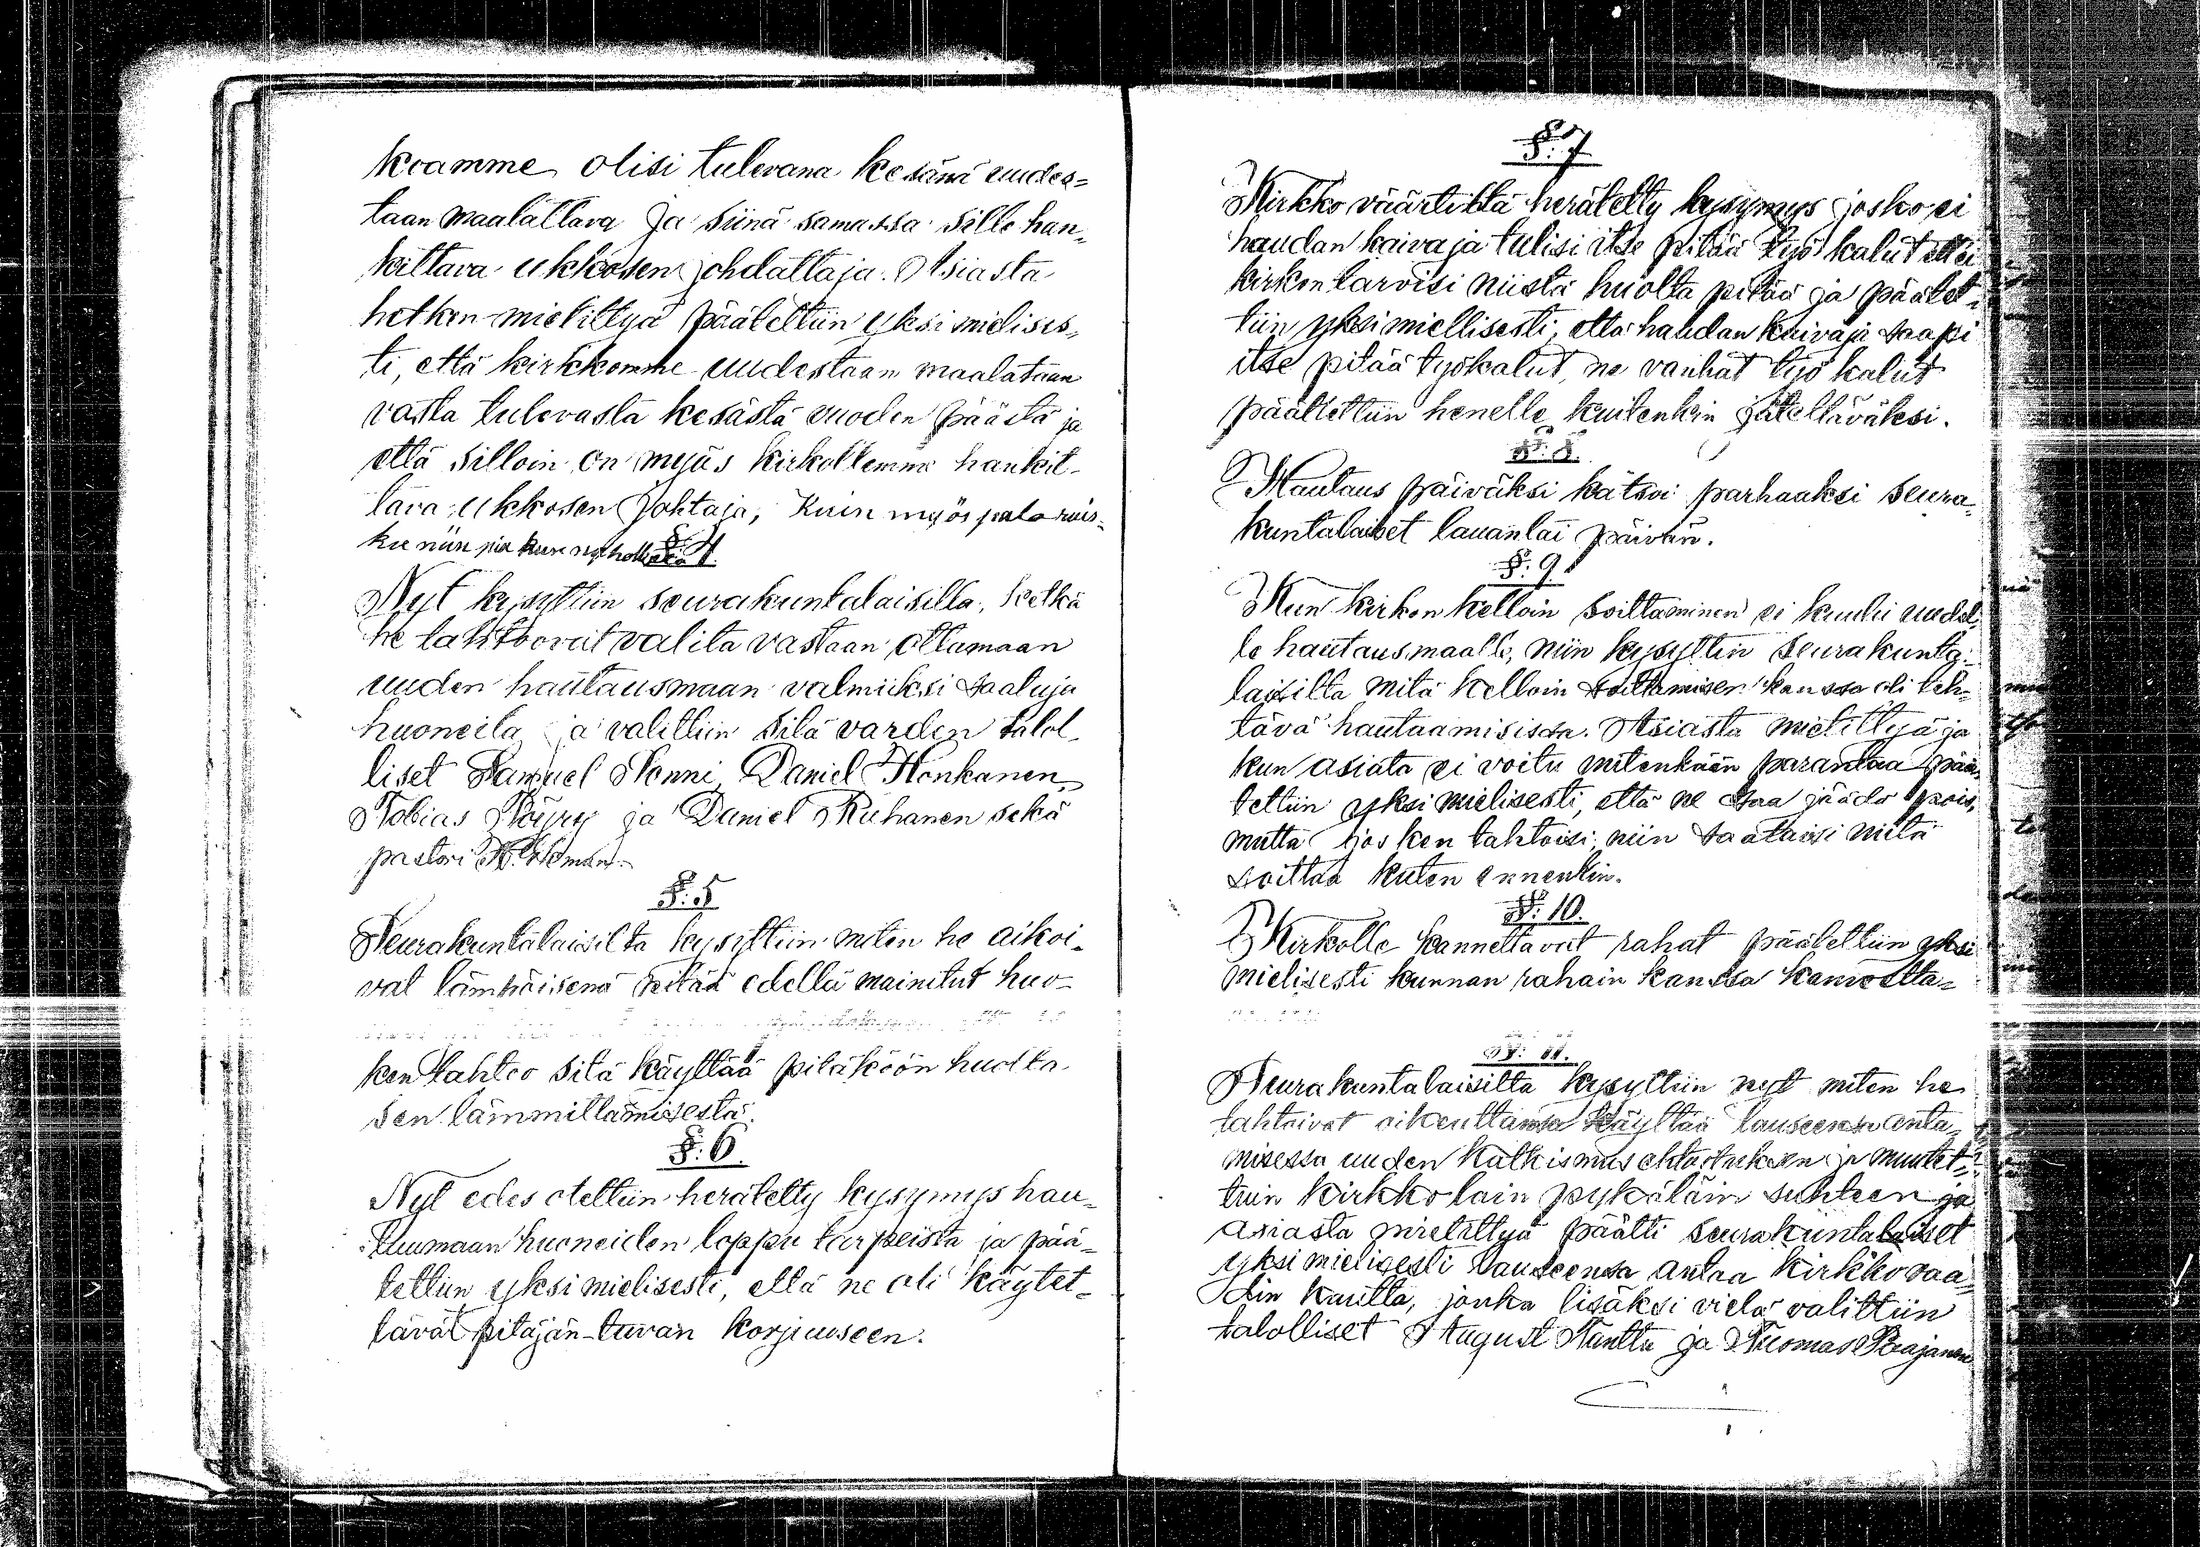 koamme olisi tulevana kesänä uudes=
taan maalattava ja siinä samassa sille han„
kittava ukkosen johdattaja. Asiasta
hetken mietittyä päätettiin yksimielises„
ti, että kirkkomme uudestaan maalataan
vasta tulevasta kesästä vuoden päästä ja
että silloin on myös kirkollemme hankit-
tava ukkosen johtaja, kuin myös palo ruis-
ku niin pia kuin
§ 4.
Nyt kysyttiin seurakuntalaisilla, ketkä
he tahtoovat valita vastaan ottamaan
uuden hautausmaan valmiiksi saatuja
huoneita ja valittiin sitä varden talol-
liset Samuel Nenni, Daniel Honkanen,
Tobias Pöyry ja Daniel Riihanen sekä
pastori
§: 5
Seurakuntalaisilta kysyttiin miten he aikoi-
vat lämpäisenä pitää edellä mainitut huo-
ken tahtoo sitä käyttää pitäköön huolta
sen lämmittämisestä.
§: 6.
Nyt edes otettiin herätetty kysymys hau-
tuumaan huoneiden loppu tarpeista ja pää-
tettiin yksimielisesti, että ne oli käytet-
tävät pitäjän-tuvan korjuuseen.
§: 7
Kirkko väärtiltä herätetty kysymys josko ei
haudan kaivaja tulisi itse pitää työkalut ettei
kirkon tarvisi niistä huolta pitää ja päätet-
tiin yksimiellisesti, että haudan kaivaja saapi
itse pitää työkalut, ne vanhat työ kalut
päätettiin henelle kuitenkin jätettäväksi.
§: 8.
Hautaus päiväksi kätsoi parhaaksi seura-
kuntalaiset lauantai päivän.
§: 9.
Kun kirkon kelloin soittaminen ei kuulu uudel-
le hautausmaalle, niin kysyttiin seurakunta-
laisilta mitä kelloin soittamisen kanssa oli teh-
tävä hautaamisissa. Asiasta mietittyä ja
kun asiata ei voitu mitenkään parantaa pää-
tettiin yksimielisesti, että ne saa jäädä pois,
mutta jos ken tahtoisi, niin saataisi niitä
soittaa kuten ennenkin.
§: 10.
Kirkolle kannettavat rahat päätettiin yksi
mielisesti kunnan rahain kanssa kannetta-
§: 11.
Seurakuntalaisilta kysyttiin nyt miten he
tahtoivat oikeuttansa käyttää lauseensa anta-
misessa uuden katkismus ehdotuksen ja muutet-
tuin kirkkolain pykäläin suhteen ja
asiasta mietittyä päätti seurakuntalaiset
yksimielisesti lauseensa antaa kirkkoraa-
din kautta, jonka lisäksi vielä valittiin
talolliset August Nanttu ja Tuomas Paajanen